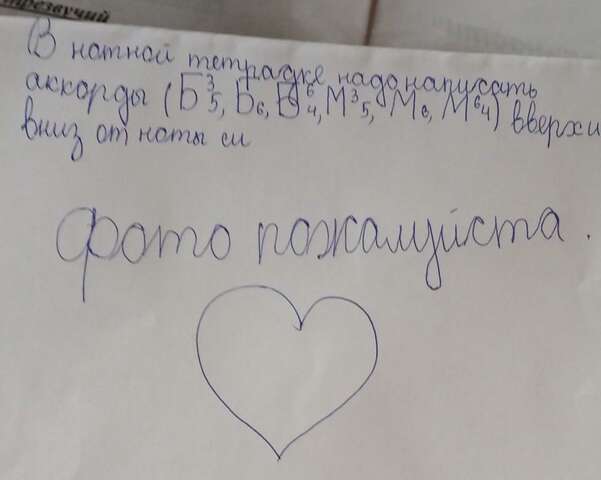 трезвучий
В нотной тетрадке надо написать
аккорды (Б³₅, Б₆, Б⁶₄, М³₅, М₆, М⁶₄) вверх и
вниз от ноты си
фото пожалуйста.